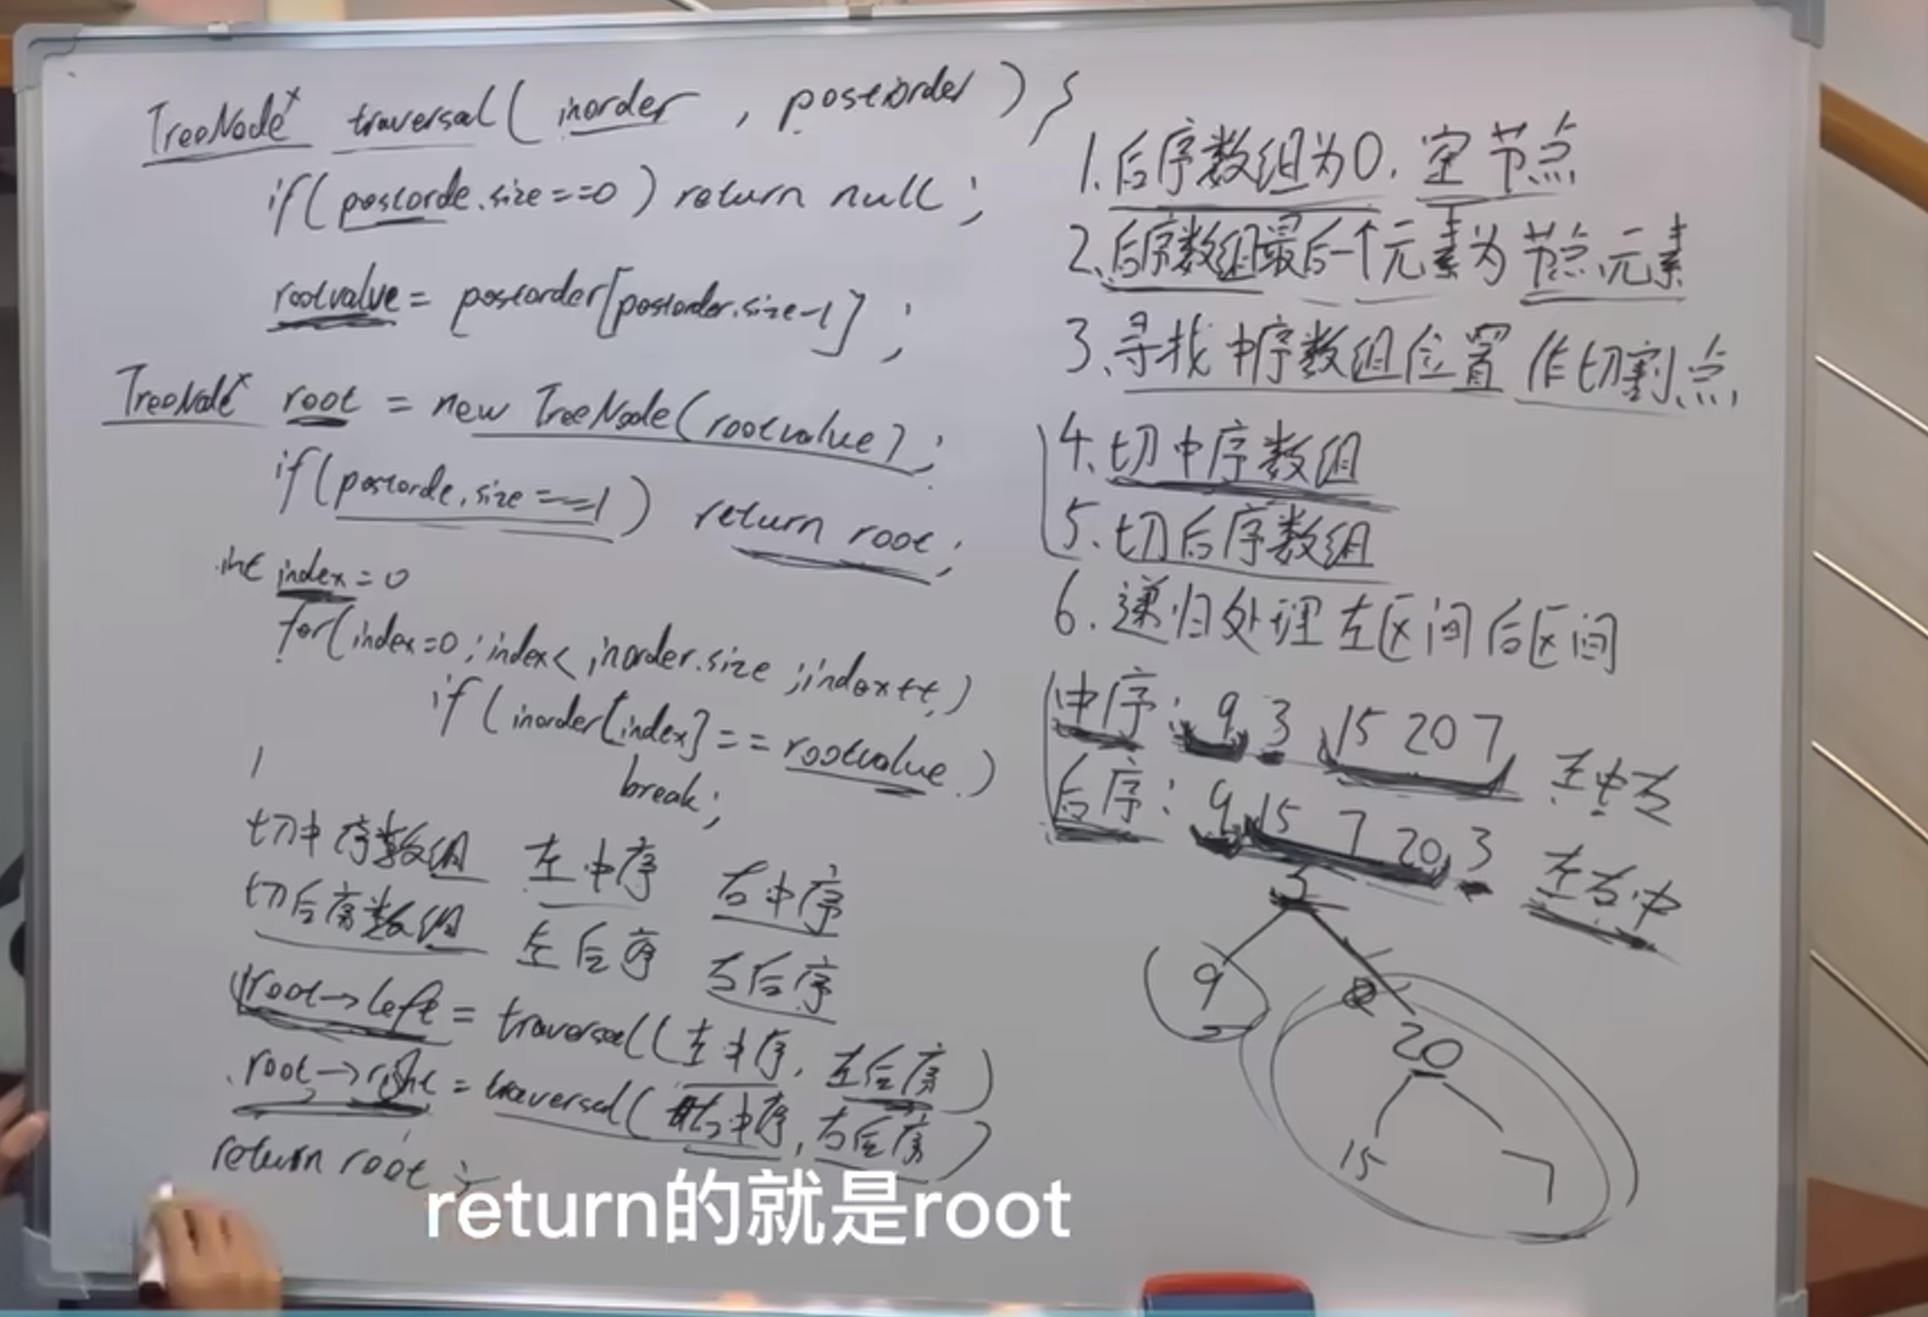 TreeNode* traversal( inorder , postorder ) {
if( postorde.size==0 ) return null ;
rootvalue = postorder[postorder.size-1] ;
TreeNode* root = new TreeNode(rootvalue) ;
if( postorde.size==1 ) return root ;
int index = 0
for( index=0 ; index< inorder.size ; index++ )
if( inorder[index] == rootvalue )
break ;
切中序数组 左中序 右中序
切后序数组 左后序 右后序
root->left = traversal( 左中序 , 左后序 )
root->right = traversal( 右中序 , 右后序 )
return root ;
1.后序数组为0, 空节点
2.后序数组最后一个元素为节点元素
3.寻找中序数组位置作切割点
4.切中序数组
5.切后序数组
6.递归处理左区间后区间
中序: 9 3 15 20 7 左中右
后序: 9 15 7 20 3 左右中
3
9
20
15 7
return的就是root